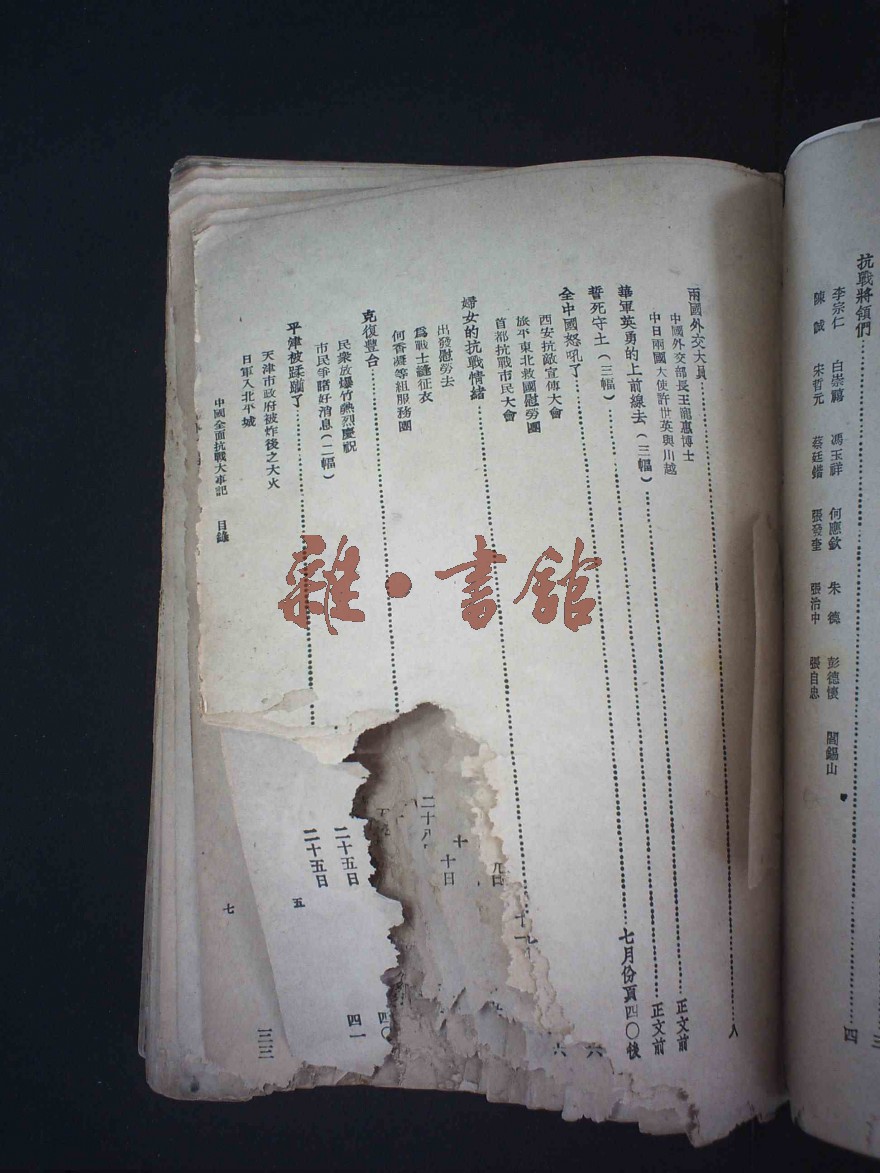 抗戰將領們……四
李宗仁 白崇禧 馮玉祥 何應欽 朱德 彭德懷 閻錫山
陳誠 宋哲元 蔡廷鍇 張發奎 張治中 張自忠
三
兩國外交大員……入
中國外交部長王寵惠博士……正文前
中日兩國大使許世英與川越……正文前
華軍英勇的上前線去(三幅)……七月份頁四〇後
誓死守土(三幅)……六
全中國怒吼了……六
西安抗敵宣傳大會
旅平東北救國慰勞團
首都抗戰市民大會
婦女的抗戰情緒……
出發慰勞去
為戰士縫征衣
何香凝等組服務團
克復豐台……
民衆放爆竹熱烈慶祝
市民爭睹好消息(二幅)
平津被蹂躪了……
天津市政府被炸後之大火
日軍入北平城
中國全面抗戰大事記 目錄
十日
二十八
二十五日
二十五日
四〇
四一
五
七
三三
雜·書館